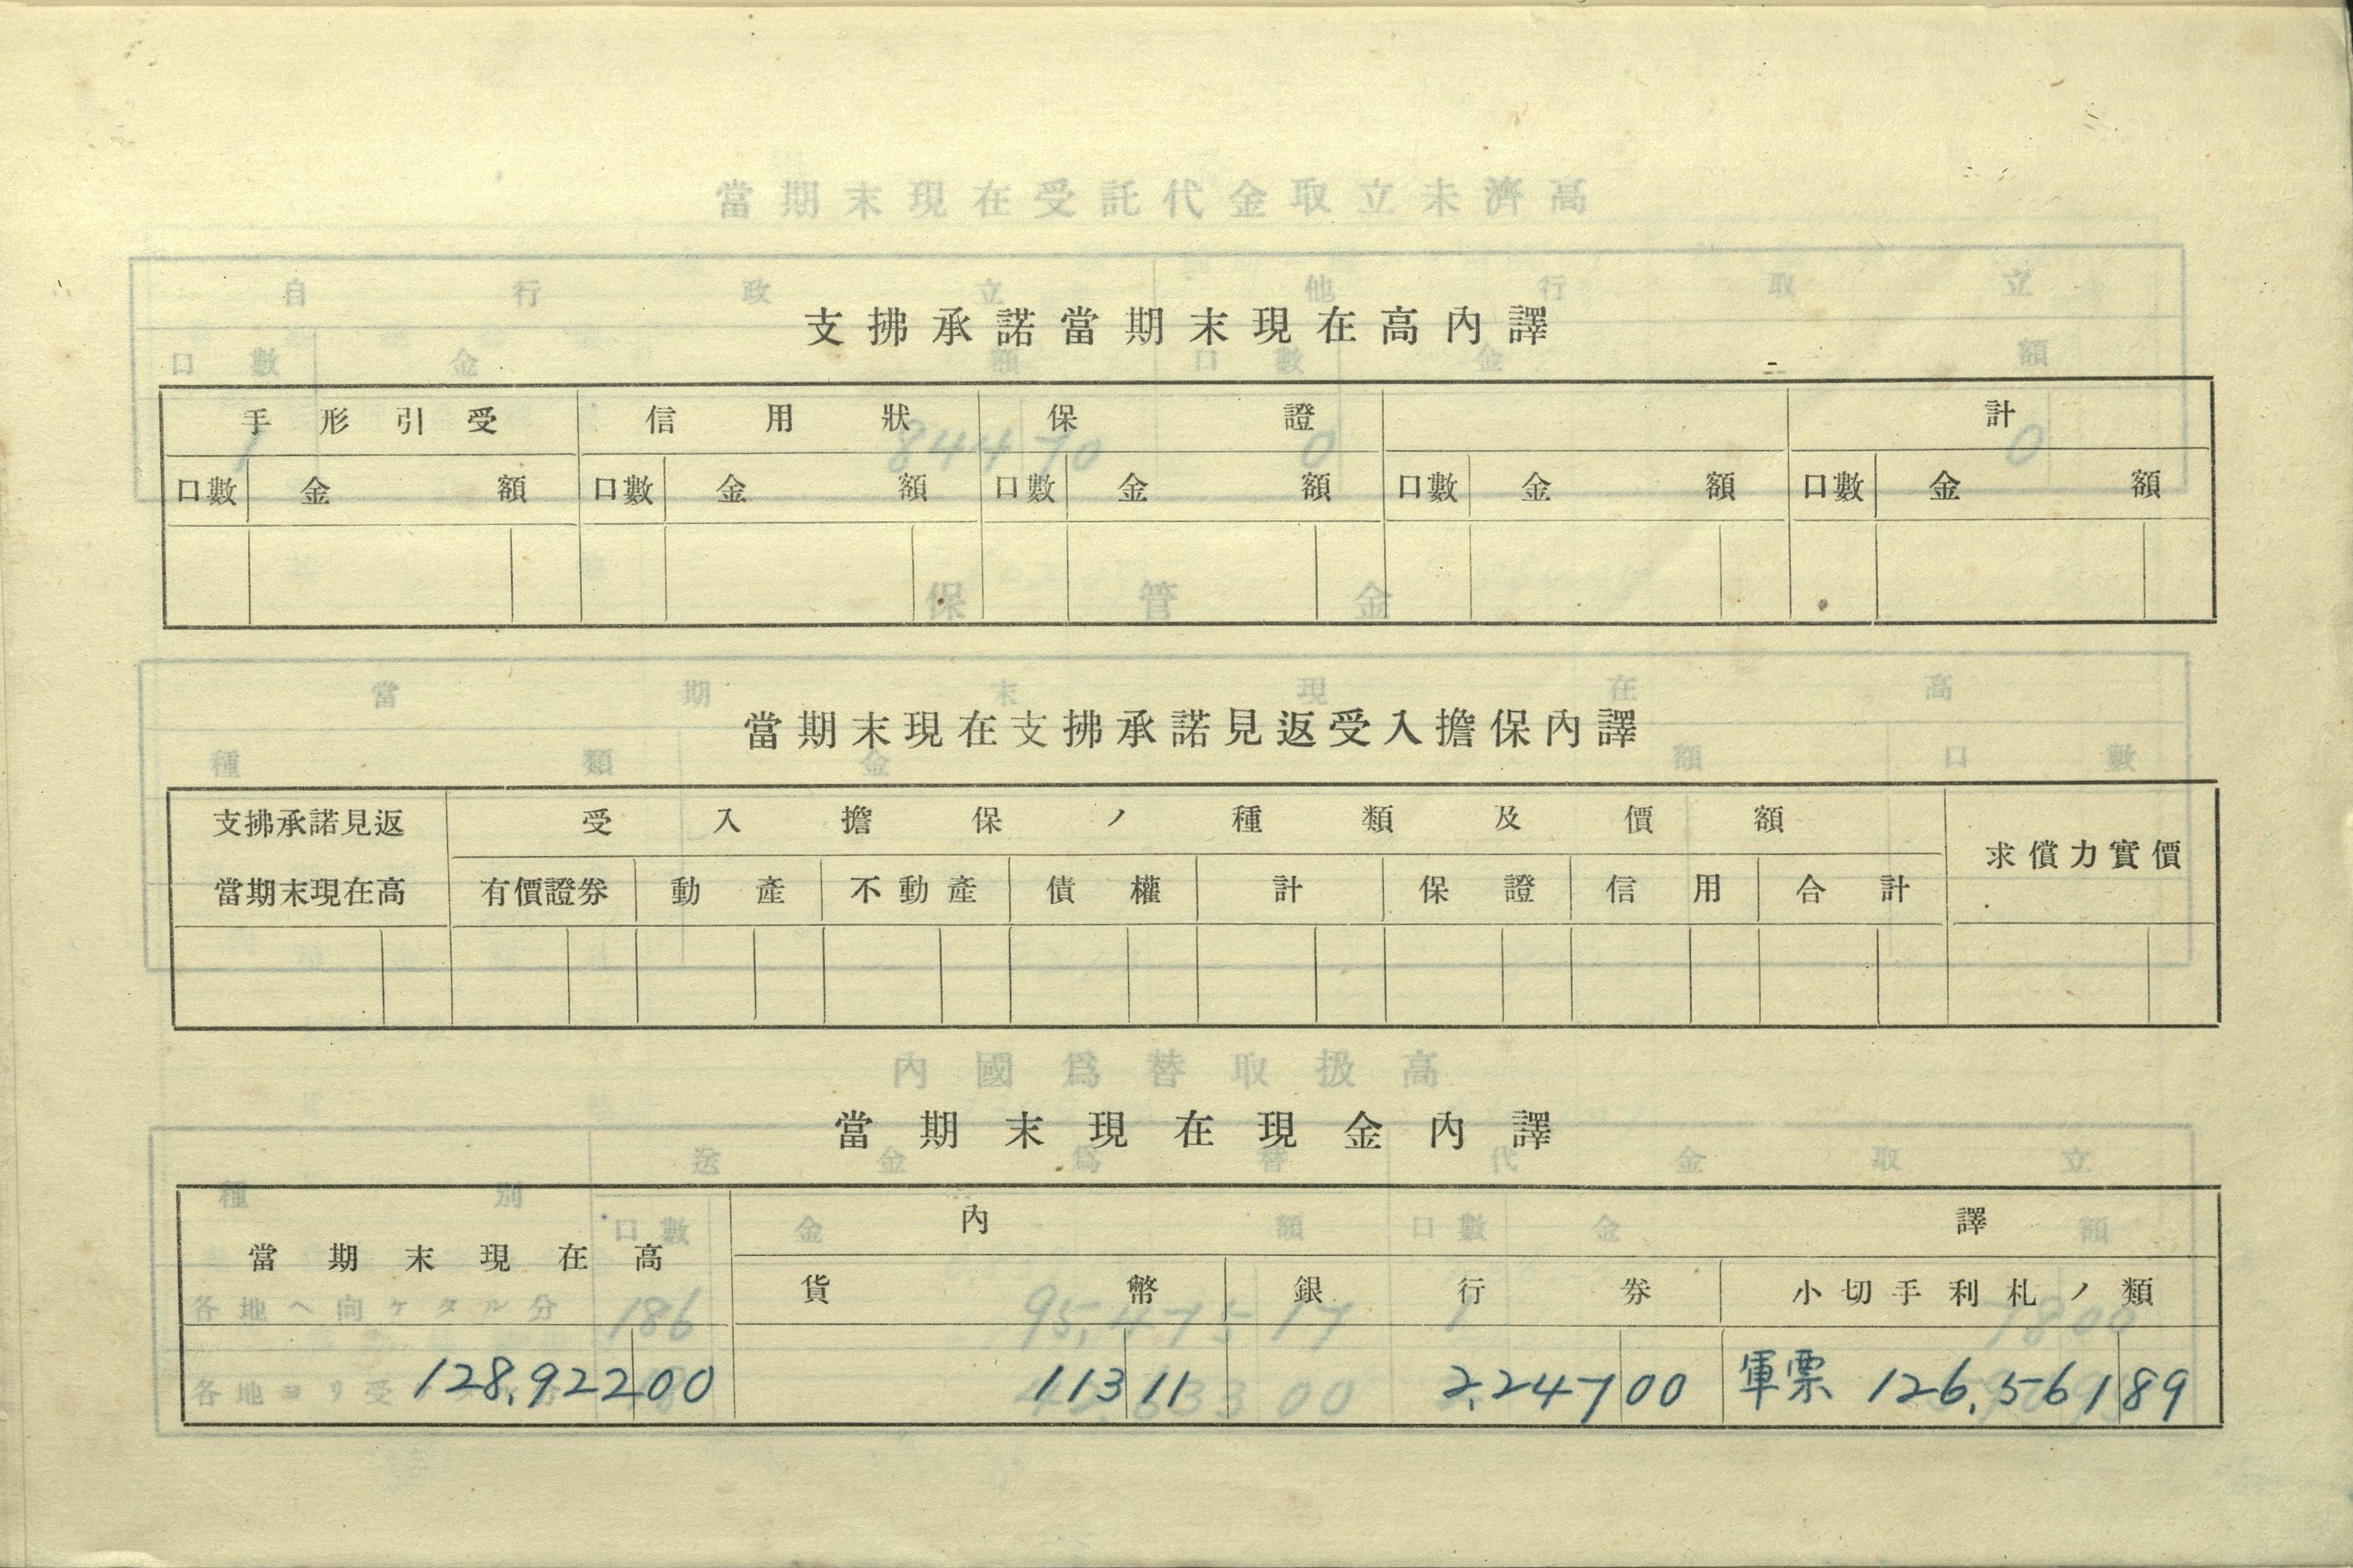 支拂承諾當期末現在高內譯
手形引受 信用狀 保證 計
口數 金額 口數 金額 口數 金額 口數 金額 口數 金額
當期末現在支拂承諾見返受入擔保內譯
支拂承諾見返當期末現在高 受入擔保ノ種類及價額 求償力實價
有價證券 動產 不動產 債權 計 保證 信用 合計
當期末現在現金內譯
當期末現在高 內譯
貨幣 銀行券 小切手利札ノ類
128,922 00 113 11 2,247 00 軍票 126,561 89